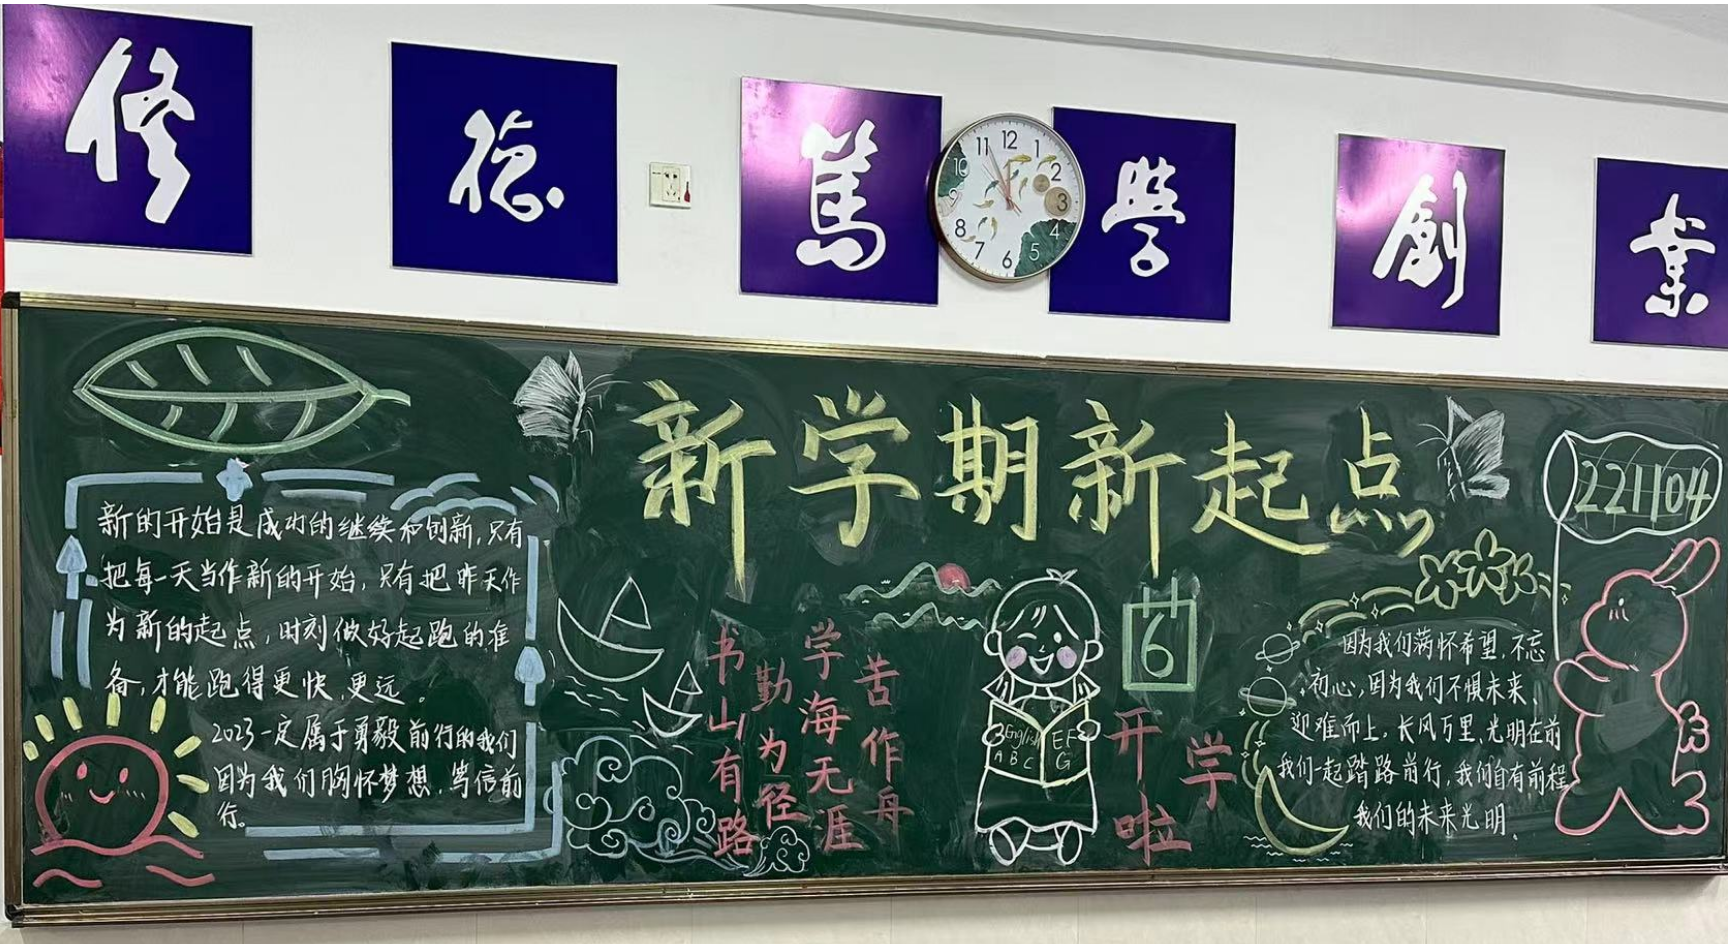 修德篤學創業
11 12 1
10 2
3
8 4
7 6 5
新学期新起点
221104
新的开始是成功的继续和创新,只有
把每一天当作新的开始,只有把昨天作
为新的起点,时刻做好起跑的准
备,才能跑得更快、更远。
2023一定属于勇毅前行的我们
因为我们胸怀梦想,笃信前
行。
书山有路
勤为径
学海无涯
苦作舟
English
A B C
E F
G
6
开学
啦
因为我们满怀希望,不忘
初心,因为我们不惧未来、
迎难而上,长风万里、光明在前
我们一起踏路前行,我们自有前程
我们的未来光明。